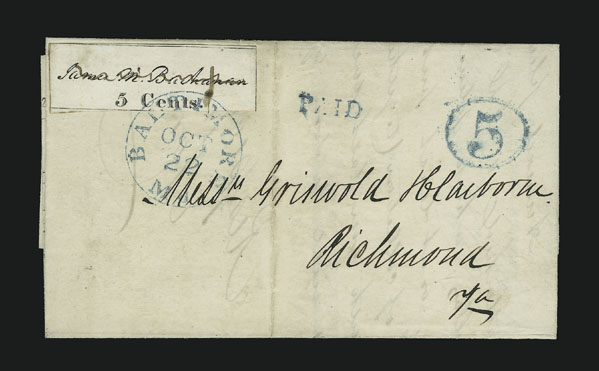 James M. Buchanan
5 Cents.
BALTIMORE
OCT
Md.
PAID
5
Messrs Griswold & Claiborne
Richmond
Va